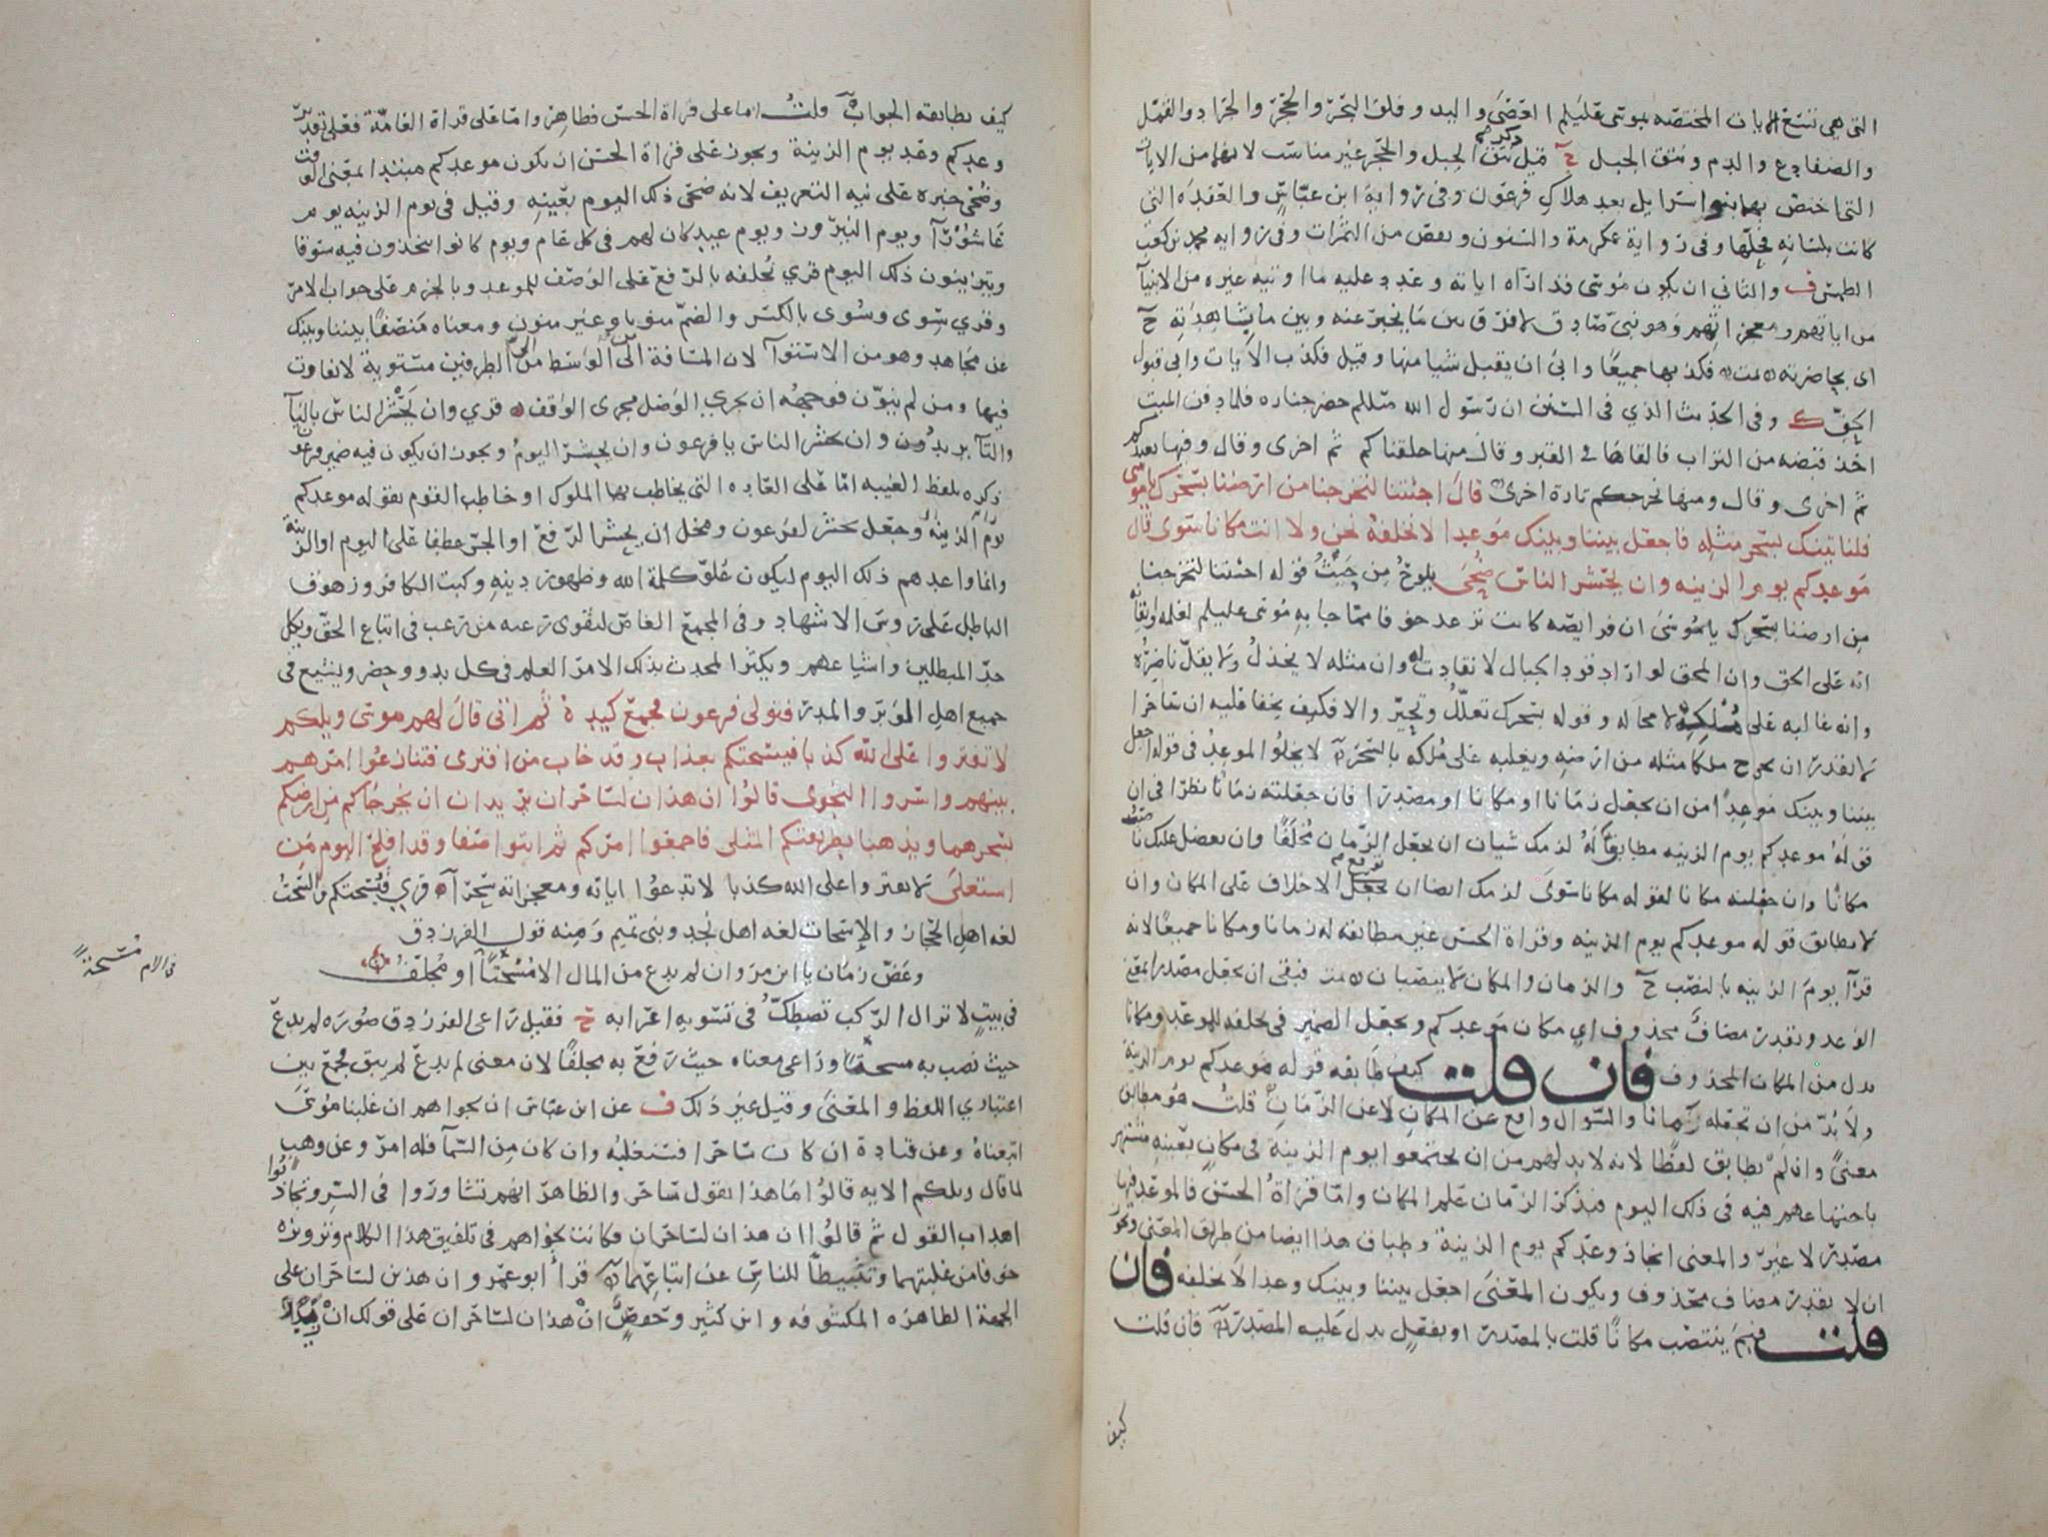 التي هي تسع الايات المختصه بموسى عليلم العصى واليد وفلق البحر والحجر والجراد والقمل
والضفادع والدم ونتق الجبل ح قيل ذكرهم نتق الجبل والحجر غير مناسب لانهما من الايات
التي اختص بها بنو اسرايل بعد هلاك فرعون وفي رواية ابن عباس والعقده التي
كانت بلسانه فحلها وفي رواية عكرمة والسنون ونقص من الثمرات وفي روايه محمد بن كعب
الطمس ف والثاني ان يكون موسى قد اراه اياته وعدد عليه ما اوتيه غيره من الانبيآ
من اياتهم ومعجزاتهم وهو نبي صادق لا فرق بين ما يخبر عنه وبين ما يشاهد به ح
اى بحاضرته تمت فكذب بها جميعًا وابى ان يقبل شيا منها وقيل فكذب الايات وابى قبول
الحق ك وفي الحديث الذي في السنن ان رسول الله صللم حضر جنازه فلما دفن الميت
اخذ قبضه من التراب فالقاها في القبر وقال منها خلقناكم ثم اخرى وقال وفيها نعيدكم
ثم اخرى وقال ومنها نخرجكم تارة اخرى قال اجئتنا لتخرجنا من ارضنا بسحرك يا موسى
فلناتينك بسحر مثله فاجعل بيننا وبينك موعدا لا نخلفه نحن ولا انت مكانا سوى قال
موعدكم يوم الزينه وان يحشر الناس ضحى يلوح من جيب قوله اجئتنا لتخرجنا
من ارضنا بسحرك يا موسى ان فرايصه كانت ترعد خوفا مما جا به موسى عليلم لعلمه وايقانه
انه على الحق وان المحق لو اراد قود الجبال لانقادت له وان مثله لا يخذل ولا يقل ناصره
وانه غالبه على ملكه لا محاله وقوله بسحرك تعلل وتحير والا فكيف يخفا عليه ان ساحرا
لا يقدر ان يخرج ملكا مثله من ارضه ويغلبه على ملكه بالسحر لا يخلوا الموعد في قوله اجعل
بيننا وبينك موعدًا من ان يجعل زمانا او مكانا او مصدرا فان جعلته زمانا نظرا في ان
قوله موعدكم يوم الزينه مطابق له لزمك شيان ان يجعل الزمان مخلفًا وان يعضل عليك ناصب
مكانًا وان جعلته مكانا لقوله مكانا سوى لزمك ايضا ان توقع الاخلاف على المكان وان
لا يطابق قوله موعدكم يوم الزينه وقراة الحسن غير مطابقه له زمانا ومكانا جميعًا لانه
قرآ يوم الزينه بالنصب ح والزمان والمكان لا ينصبان تمت فبقي ان يجعل مصدرا بمعنى
الوعد ويقدر مضاف محذوف اي مكان موعدكم ويجعل الضمير في نخلفه للموعد ومكانا
بدل من المكان المحذوف فان قلت كيف طابقه قوله موعدكم يوم الزينة
ولا بد من ان تجعله زمانا والسوال واقع عن المكان لا عن الزمان قلت هو مطابق
معنى وان لم يطابق لفظًا لانه لا بد لهم من ان يجتمعوا يوم الزينة في مكان بعينه مشتهر
باجتماعهم فيه في ذلك اليوم فبذكر الزمان علم المكان وامّا قراة الحسن فالموعد فيها
مصدر لا غير والمعنى انجاز وعدكم يوم الزينة وطباق هذا ايضا من طريق المعنى ويجوز
ان لا يقدر مضاف محذوف ويكون المعنى اجعل بيننا وبينك وعدا لا نخلفه فان
قلت فبم ينتصب مكانًا قلت بالمصدر او بفعل يدل عليه المصدر فان قلت
كيف
كيف يطابقه الجواب قلت اما على قراة الحسن فظاهر وامّا على قراة العامّة فعلى تقدير
وعدكم وعد يوم الزينة ويجوز على قراة الحسن ان يكون موعدكم مبتدا بمعنى الوقت
وضحى خبره على نيه التعريف لانه ضحى ذلك اليوم بعينه وقيل في يوم الزينه يوم
عاشورآ ويوم النيروز ويوم عيد كان لهم في كل عام ويوم كانوا يتخذون فيه سوقا
ويتزينون ذلك اليوم قري نخلفه بالرفع على الوصف للموعد وبالجزم على جواب الامر
وقري سوى وسوى بالكسر والضم منونا وغير منون ومعناه منصفا بيننا وبينك
عن مجاهد وهو من الاستوآ لان المسافة من الوسط الى الطرفين مستوية لا تفاوت
فيها ومن لم ينون فوجهه ان يجري الوصل مجرى الوقف قري وان تحشر الناس باليآ
والتآ يريدون وان تحشر الناس يا فرعون وان يحشر اليوم ويجوز ان يكون فيه ضمير فرعون
ذكره بلفظ الغيبه امّا على العاده التي يخاطب بها الملوك او خاطب القوم بقوله موعدكم
يوم الزينة وجعل يحشر لفرعون ومحل ان يحشر الرفع او الجر عطفا على اليوم او الزينة
وانما واعدهم ذلك اليوم ليكون علو كلمة الله وظهور دينه وكبت الكافر وزهوق
الباطل على روس الاشهاد وفي المجمع الغاص لتقوى رغبه من رغب في اتباع الحق ويكل
حد المبطلين واشياعهم ويكثر المحدث بذلك الامر العلم في كل بدو وحضر ويشيع في
جميع اهل الوبر والمدر فتولى فرعون فجمع كيده ثم اتى قال لهم موسى ويلكم
لا تفتروا على الله كذبا فيسحتكم بعذاب وقد خاب من افترى فتنازعوا امرهم
بينهم واسروا النجوى قالوا ان هذان لساحران يريدان ان يخرجاكم من ارضكم
بسحرهما ويذهبا بطريقتكم المثلى فاجمعوا امركم ثم ايتوا صفا وقد افلح اليوم من
استعلى لا تفتروا على الله كذبا لا تدعوا اياته ومعجزاته سحرآ قري فيسحتكم والسحت
لغه اهل الحجاز والإسحات لغه اهل نجد وبني تميم ومنه قول الفرزدق
وعض زمان يا ابن مروان لم يدع من المال الا مسحتًا او مجلف
في بيتٍ لا تزال الركب تصطك في تسويه اعرابه ح فقيل راعى الفرزدق صوره لم يدع
حيث نصب به مسحتا وراعى معناه حيث رفع به مجلفًا لان معنى لم يدع لم يبق فجمع بين
اعتباري اللفظ والمعنى وقيل غير ذلك ف عن ابن عباس ان نجواهم ان غلبنا موسى
اتبعناه وعن قتادة ان كان ساحرا فسنغلبه وان كان من السمآ فله امر وعن وهب
لما قال ويلكم الايه قالوا ما هذا بقول ساحر والظاهر انهم تشاوروا في السر وتجاذبوا
اهداب القول ثم قالوا ان هذان لساحران فكانت نجواهم في تلفيق هذا الكلام وتزويره
خوفا من غلبتهما وتثبيطًا للناس عن اتباعهما قرأ ابو عمرو ان هذين لساحران على
الجهة الظاهره المكشوفه وابن كثير وحفص ان هذان لساحران على قولك ان زيدا
في الام مسحة